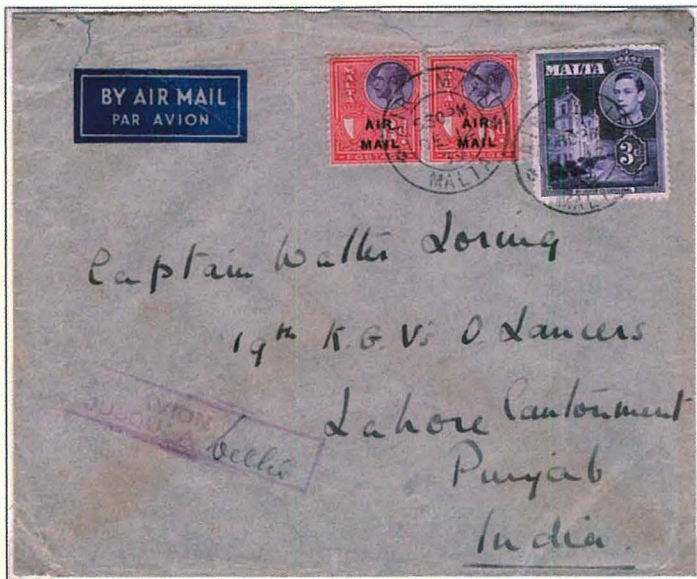 BY AIR MAIL
PAR AVION
MALTA
AIR
MAIL
POSTAGE
AIR
MAIL
MALTA
3D
MALTA
MALTA
Captain Walter Loring
19th K.G.V's O Lancers
Lahore Cantonment
Punjab
India.